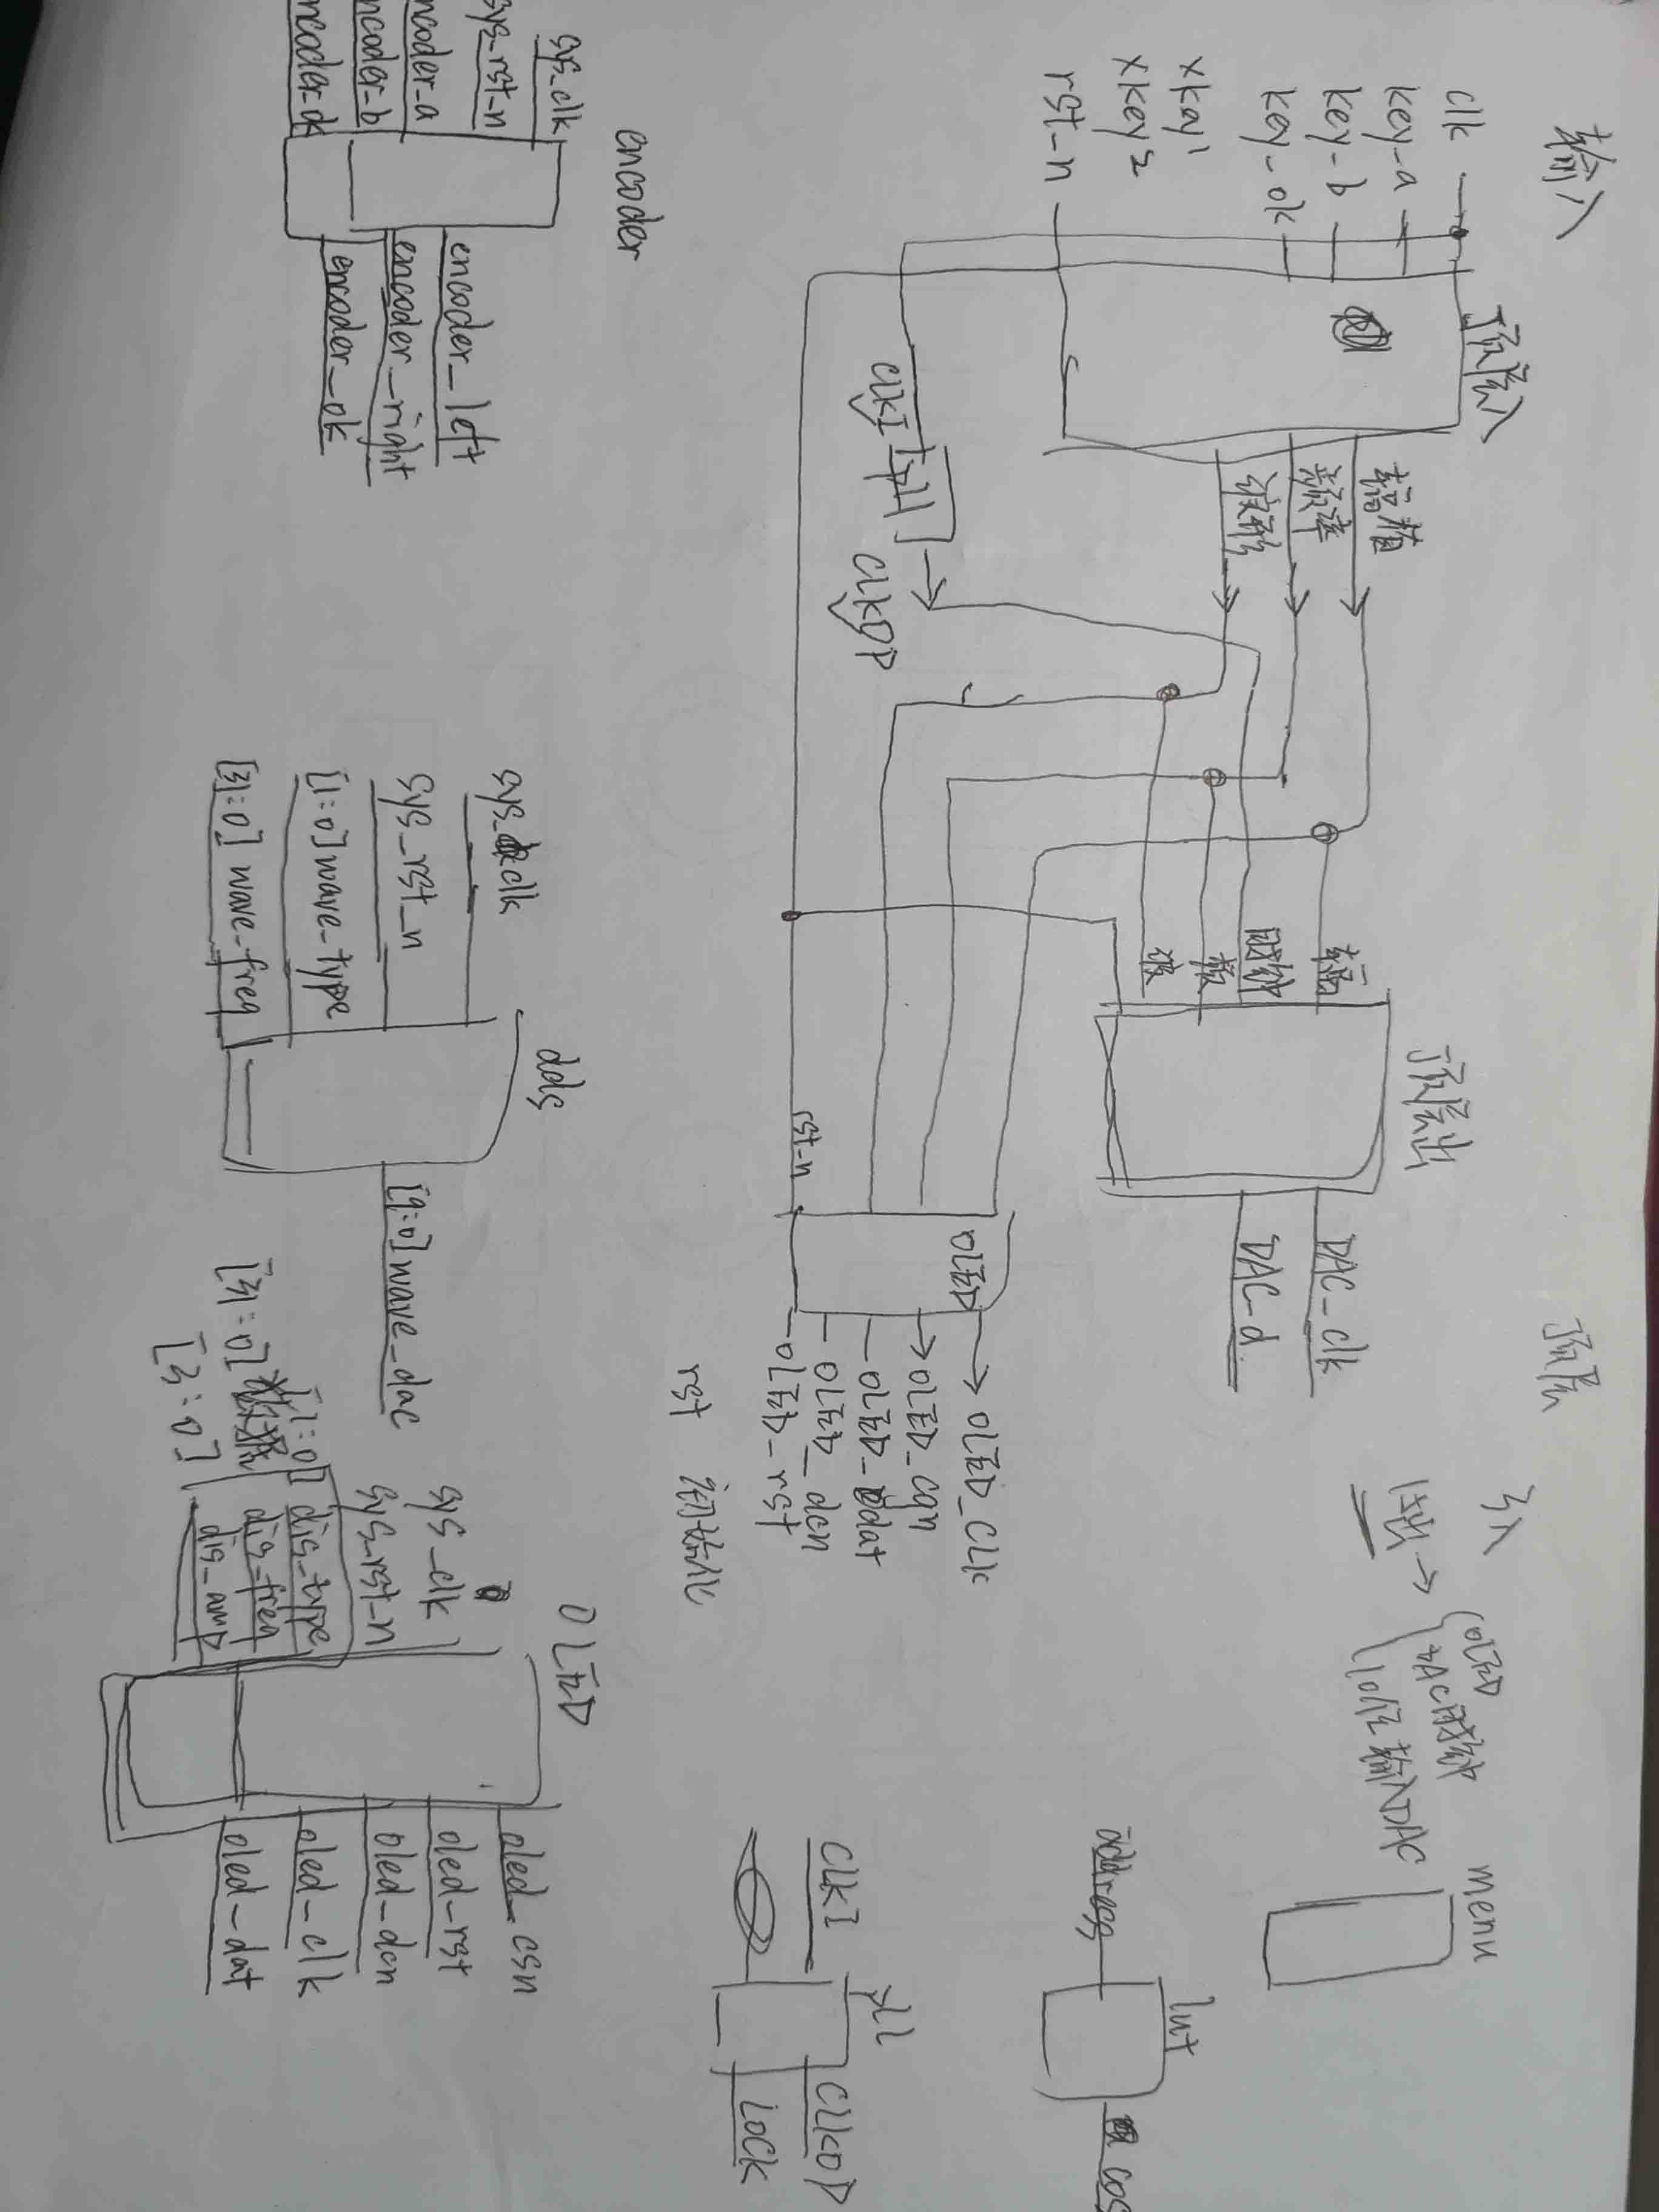 输入
clk
key-a
key-b
key-ok
xkey1
xkey2
rst-n
顶层入
幅值
频率
波形
CLKI
pll
CLKOP
幅
时钟
频
波
顶层出
DAC_clk
DAC_d
rst-n
OLED
OLED_CLK
OLED_csn
OLED_dat
OLED_dcn
OLED_rst
rst 初始化
顶层
3入
1出
OLED
DAC时钟
10位输入DAC
menu
encoder
sys_clk
sys_rst_n
ncoder_a
ncoder_b
ncoder_ok
encoder_left
encoder_right
encoder_ok
dds
sys_clk
sys_rst_n
[1:0] wave_type
[31:0] wave_freq
[9:0] wave_dac
OLED
sys_clk
sys_rst_n
[1:0] dis_type
[31:0] dis_freq
[3:0] dis_amp
oled_csn
oled_rst
oled_dcn
oled_clk
oled_dat
pll
CLKI
CLKOP
LOCK
lut
address
cos